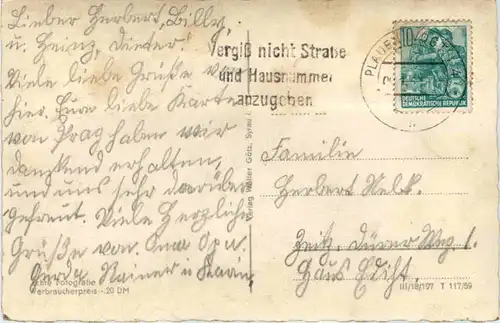 Lieber Herbert, Billa,
u. Heinz, Dieter!
Viele liebe Grüße von
hier. Eure liebe Karte
von Prag haben wir
dankend erhalten,
und uns sehr darüber
gefreut. Viele Herzliche
Grüße von. Oma Opa u.
Gerda Rainer u
Echte Fotografie
Verbraucherpreis -.20 DM
Verlag Walter Götz, Syrau i.
vergiß nicht Straße
und Hausnummer
anzugeben
PLAUEN
10
DEUTSCHE
DEMOKRATISCHE REPUBLIK
Familie
Herbert
Zeitz. Dürer Weg 1.
Haus Edith.
III/18/197 T 117/59